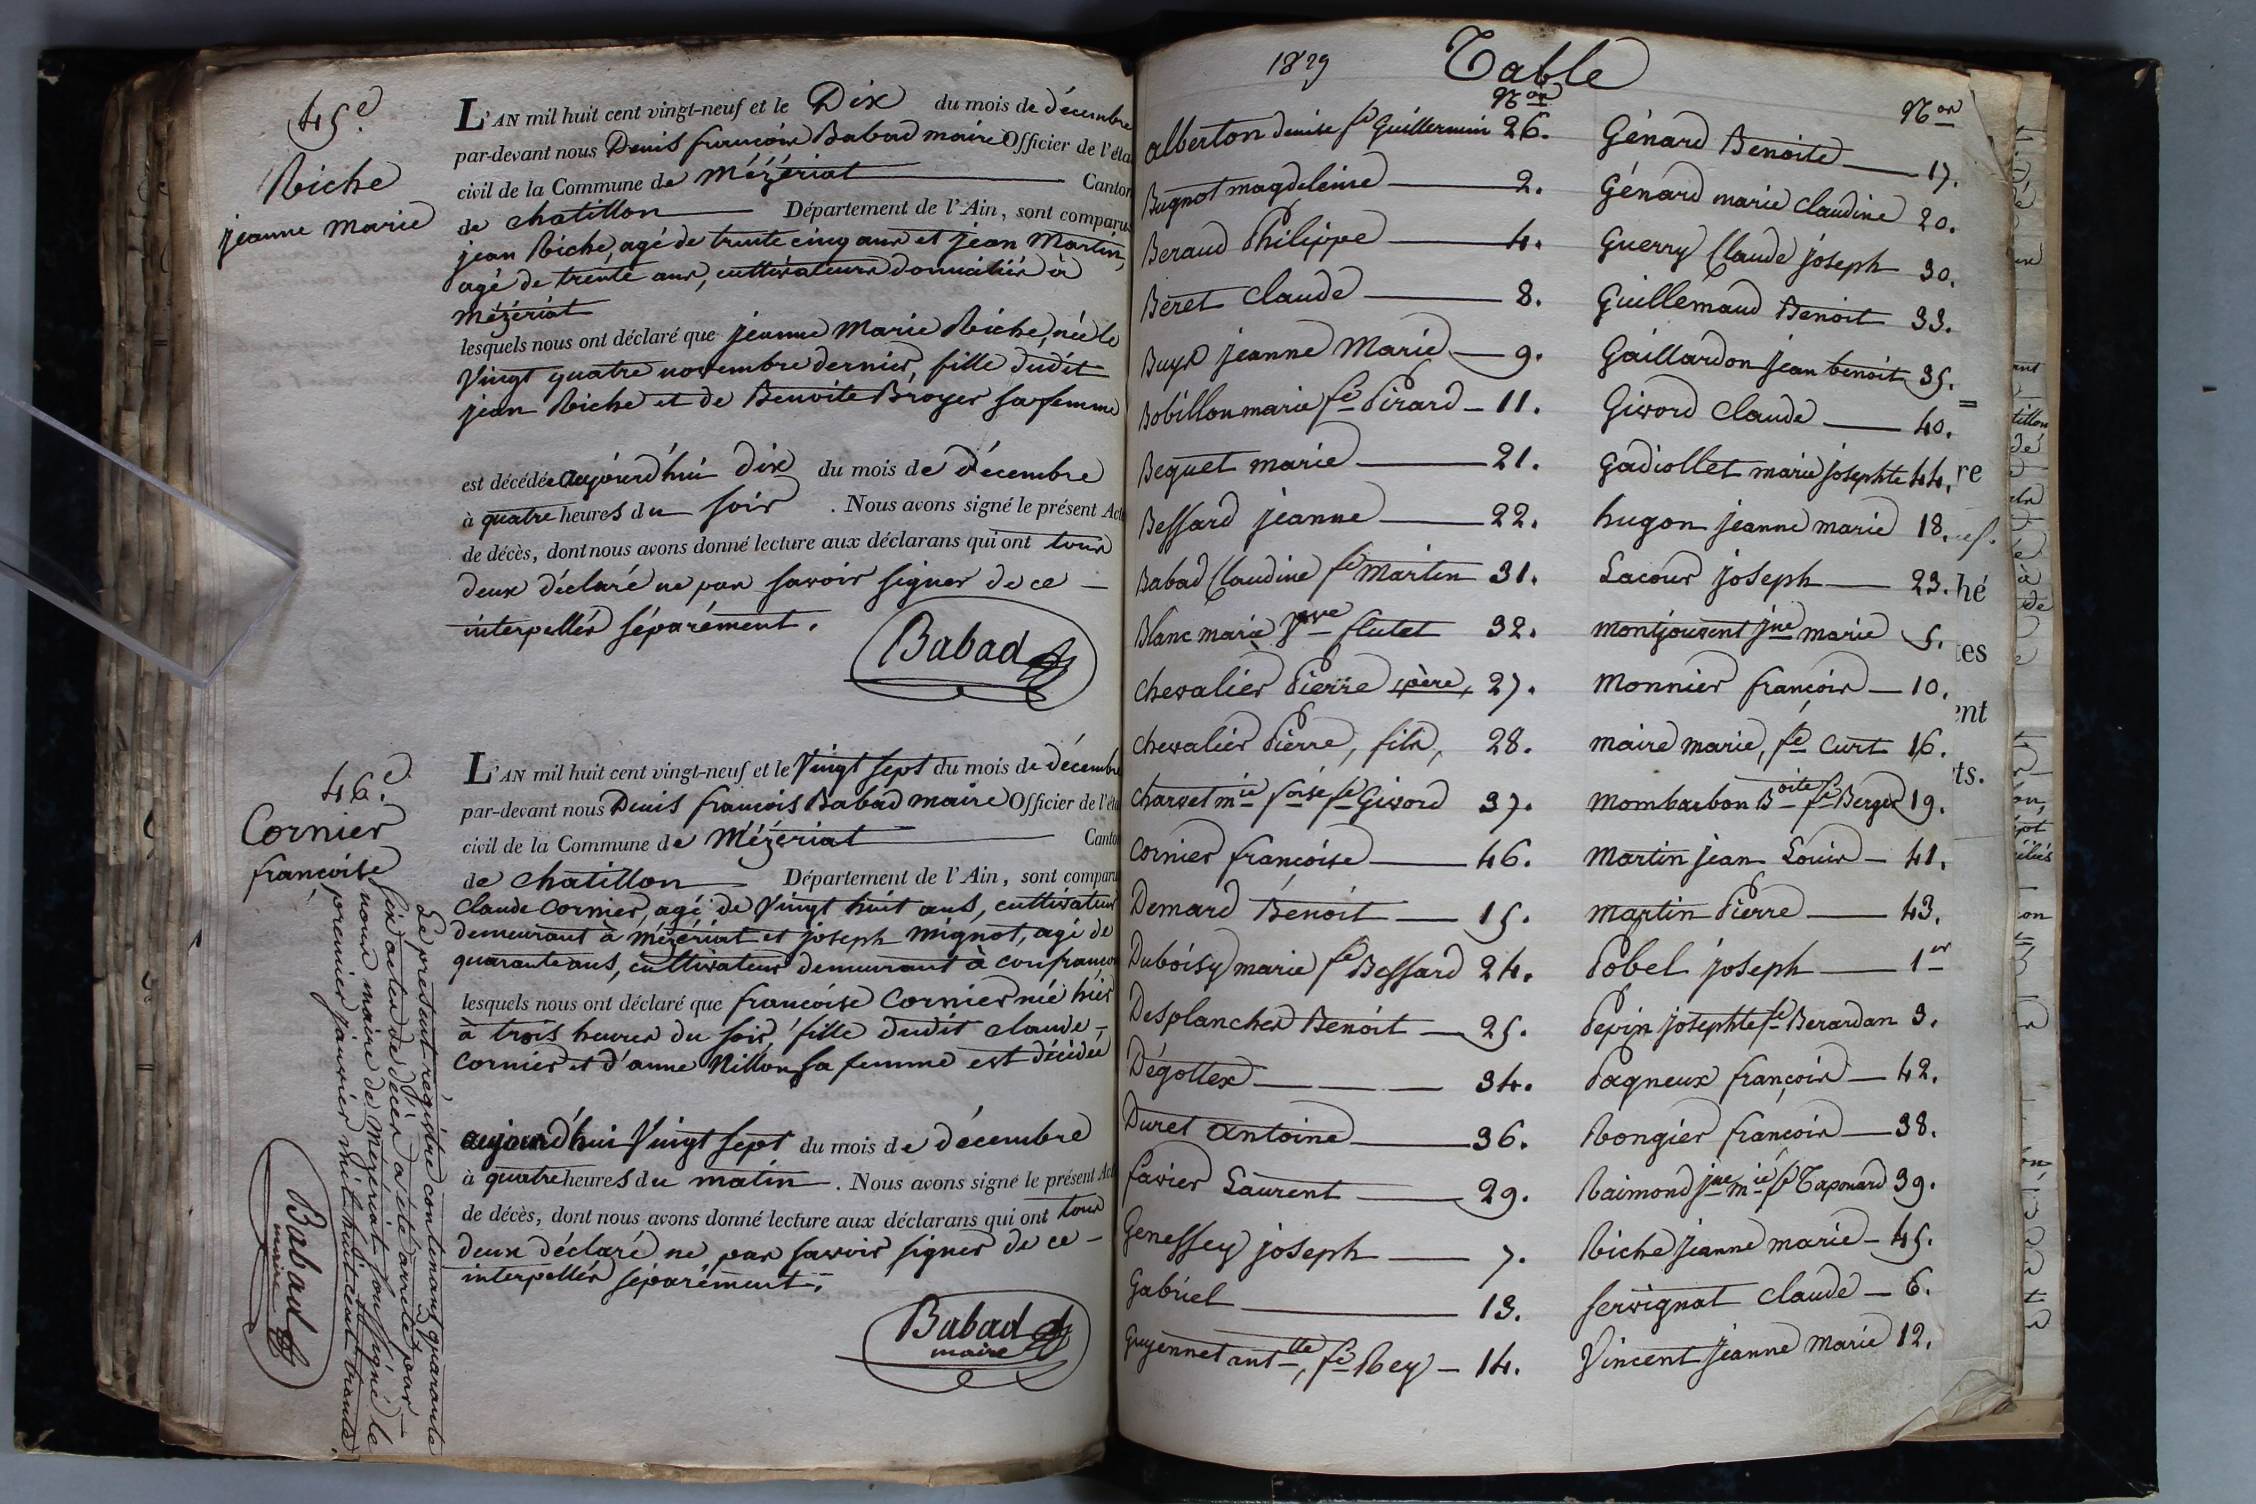 45e.
Riche
jeanne marie
L'AN mil huit cent vingt-neuf et le Dix du mois de décembre
par-devant nous Denis françois Babad maire Officier de l'éta
civil de la Commune de Mézériat Canton
de chatillon Département de l'Ain, sont comparus
jean Riche, agé de trente cinq ans et jean Martin,
agé de trente ans, cultivateurs domiciliés à
Mézériat
lesquels nous ont déclaré que jeanne Marie Riche, née le
Vingt quatre novembre dernier, fille dudit
jean Riche et de Benoite Broyer sa femme
est décédée aujourd'hui dix du mois de décembre
à quatre heures du soir . Nous avons signé le présent Acte
de décès, dont nous avons donné lecture aux déclarans qui ont tous
deux déclaré ne pas savoir signer de ce
interpellés séparément.
Babad
46e.
Cornier
françoise
L'AN mil huit cent vingt-neuf et le Vingt sept du mois de décembre
par-devant nous Denis françois Babad maire Officier de l'éta
civil de la Commune de Mézériat Canton
de chatillon Département de l'Ain, sont comparu
Claude Cornier, agé de Vingt huit ans, cultivateur
demeurant à Mézériat et joseph Mignot, agé de
quarante ans, cultivateur demeurant à Confrançon
lesquels nous ont déclaré que françoise Cornier née hier
à trois heures du soir, fille dudit claude
Cornier et d'anne Nillon sa femme est décédée
aujourd'hui Vingt sept du mois de décembre
à quatre heures du matin . Nous avons signé le présent Act
de décès, dont nous avons donné lecture aux déclarans qui ont tous
deux déclaré ne pas savoir signer de ce
interpellés séparément.
Babad
maire
Le présent régistre contenant quarante
six actes de décès a été arrêté par
nous maire de Mézériat soussigné le
premier janvier mil huit cent trente.
Babad
maire
1829 Table
Nos
alberton denise fe Guillermin 26.
Bugnot magdeleine 2.
Beraud Philippe 4.
Beret Claude 8.
Buys jeanne Marie 9.
Bobillon marie fe Pirard 11.
Bequet marie 21.
Bessard jeanne 22.
Babad Claudine fe Martin 31.
Blanc marie Vve flutet 32.
chevalier Pierre père, 27.
chevalier Pierre, fils, 28.
Charvet mie foise fe Givord 37.
Cornier françoise 46.
Demard Benoit 15.
Duboisy marie fe Bessard 24.
Desplanches Benoit 25.
Dégottex 34.
Duret antoine 36.
favier Laurent 29.
Genessey joseph 7.
Gabriel 13.
Guyennet antte, fe Rey 14.
Nos
Génard Benoite 17.
Génard marie claudine 20.
Guerry Claude joseph 30.
Guillemaud Benoit 33.
Gaillardon jean benoit 35.
Givord claude 40.
Gadiollet marie josephte 44.
hugon jeanne marie 18.
Lacour joseph 23.
montjouvent jne marie 5.
Monnier françois 10.
maire marie, fe Curt 16.
mombarbon Boite fe Berger 19.
Martin jean Louis 41.
Martin Pierre 43.
Pobel joseph 1er
Pepin josephte fe Berardan 3.
Pagneux françois 42.
Rongier françois 38.
Raimond jne mie fe Taponard 39.
Riche jeanne marie 45.
servignat claude 6.
Vincent jeanne Marie 12.
re
hé
tes
ent
ts.